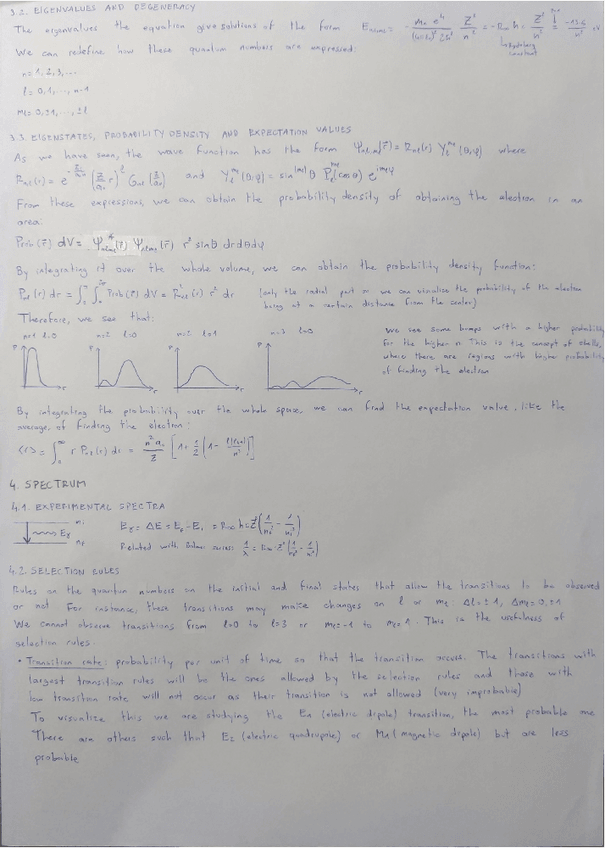 3.2. EIGENVALUES AND DEGENERACY
The eigenvalues the equation give solutions of the form E = - Z² / n² = -R∞ h Z² / n² = -13.6 / n² eV
We can redefine how these quantum numbers are expressed:
n = 1, 2, 3, ...
l = 0, 1, ..., n-1
ml = 0, ±1, ..., ±l
3.3. EIGENSTATES, PROBABILITY DENSITY AND EXPECTATION VALUES
As we have seen, the wave function has the form Ψ(r) = Rnl(r) Yl^ml (θ,φ) where
Rnl(r) = e and Yl^ml (θ,φ) = sin^|ml| θ P (cos θ) e^imlφ
From these expressions, we can obtain the probability density of obtaining the electron in an
area:
Prob (r) dV = Ψ* (r) Ψ (r) r² sinθ dr dθ dφ
By integrating it over the whole volume, we can obtain the probability density function:
Pnl (r) dr = ∫ ∫ Prob (r) dV = R²nl (r) r² dr (only the radial part so we can visualize the probability of the electron
being at a certain distance from the center)
Therefore, we see that:
n=1 l=0 n=2 l=0 n=2 l=1 n=3 l=0
P r P r P r P r
We see some bumps with a higher probability
for the higher n. This is the concept of shells,
where there are regions with higher probability
of finding the electron
By integrating the probability over the whole space, we can find the expectation value, like the
average, of finding the electron:
<r> = ∫₀^∞ r Pnl (r) dr = n² a₀ / Z [1 + 1/2 (1 - l(l+1) / n²)]
4. SPECTRUM
4.1. EXPERIMENTAL SPECTRA
ni
Eγ
nf
Eγ = ΔE = R∞ hcZ² (1/nf² - 1/ni²)
Related with series: 1/λ = R∞ Z² (1/nf² - 1/ni²)
4.2. SELECTION RULES
Rules on the quantum numbers on the initial and final states that allow the transitions to be observed
or not. For instance, these transitions may make changes on l or ml: Δl = ±1, Δml = 0, ±1
We cannot observe transitions from l=0 to l=3 or ml=-1 to ml=1. This is the usefulness of
selection rules.
• Transition rate: probability per unit of time so that the transition occurs. The transitions with
largest transition rules will be the ones allowed by the selection rules and those with
low transition rate will not occur as their transition is not allowed (very improbable)
To visualize this we are studying the E1 (electric dipole) transition, the most probable one
There are others such that E2 (electric quadrupole) or M1 (magnetic dipole) but are less
probable